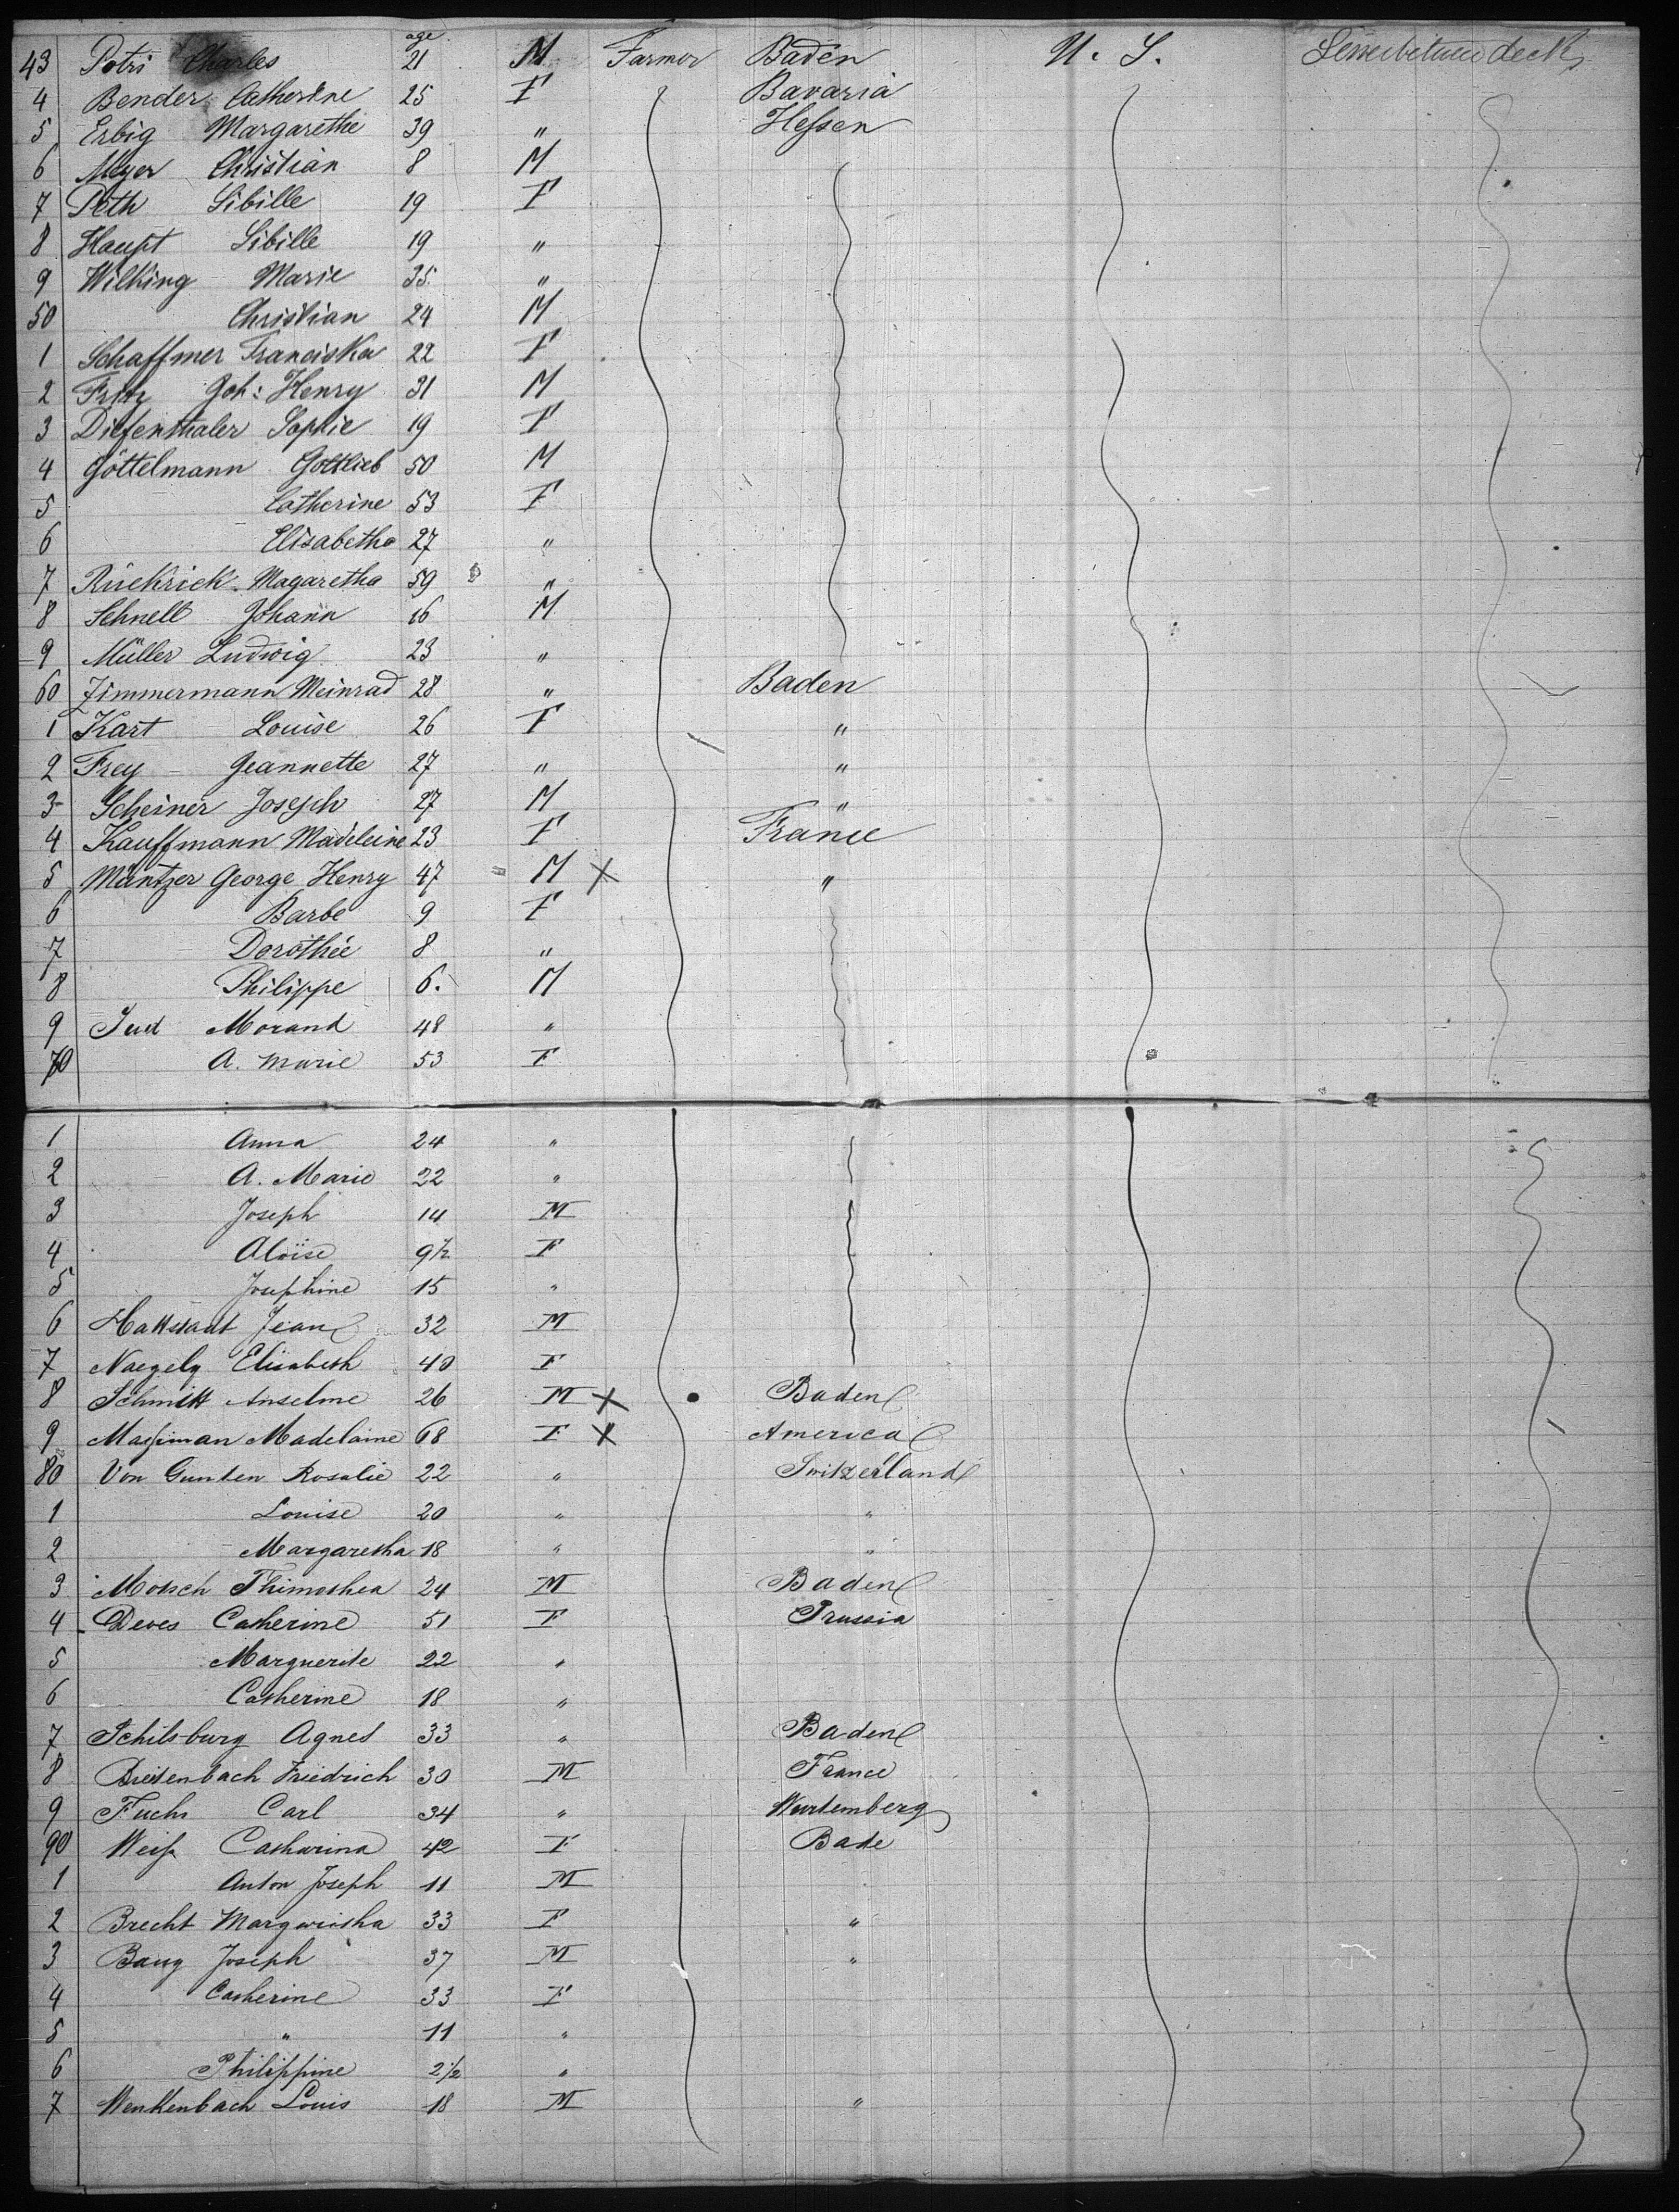 age
43 Petri Charles 21 M Farmer Baden U. S. deck
4 Bender Catherine 25 F Bavaria
5 Erbig Margarethe 39 " Hessen
6 Meyer Christian 8 M
7 Peth Sibille 19 F
8 Haupt Sibille 19 "
9 Wilking Marie 35 "
50 Christian 24 M
1 Schaffmer Franciska 22 F
2 Fritz Joh: Henry 31 M
3 Diefenthaler Sophie 19 F
4 Göttelmann Gottlieb 50 M
5 Catherine 53 F
6 Elisabetha 27 "
7 Rückrick Magaretha 59 "
8 Schnell Johann 16 M
9 Müller Ludwig 23 "
60 Zimmermann Meinrad 28 " Baden
1 Kart Louise 26 F "
2 Frey Jeannette 27 " "
3 Scheiner Joseph 27 M "
4 Kauffmann Madeleine 23 F France
5 Müntzer George Henry 47 M X "
6 Barbe 9 F
7 Dorothée 8 "
8 Philippe 6. M
9 Jud Morand 48 "
70 A. Marie 53 F
1 Anna 24 "
2 A. Marie 22 "
3 Joseph 14 M
4 Aloïse 9½ F
5 Josephine 15 "
6 Jean 32 M
7 Naegely Elisabeth 40 F
8 Schmitt Anselme 26 M X Baden
9 Massiman Madelaine 68 F X America
80 Von Gunten Rosalie 22 " Switzerland
1 Louise 20 " "
2 Margaretha 18 " "
3 Mötsch Thimothea 24 M Baden
4 Deves Catherine 51 F Prussia
5 Marguerite 22 "
6 Catherine 18 "
7 Schilsburg Agnes 33 " Baden
8 Breitenbach Friedrich 30 M France
9 Fuchs Carl 34 " Wurtemberg
90 Weiss Catharina 42 F Bade
1 Anton Joseph 11 M
2 Brecht 33 F "
3 Baug Joseph 37 M "
4 Catherine 33 F
5 " 11 "
6 Philippine 2½ "
7 Wenkenbach Louis 18 M "